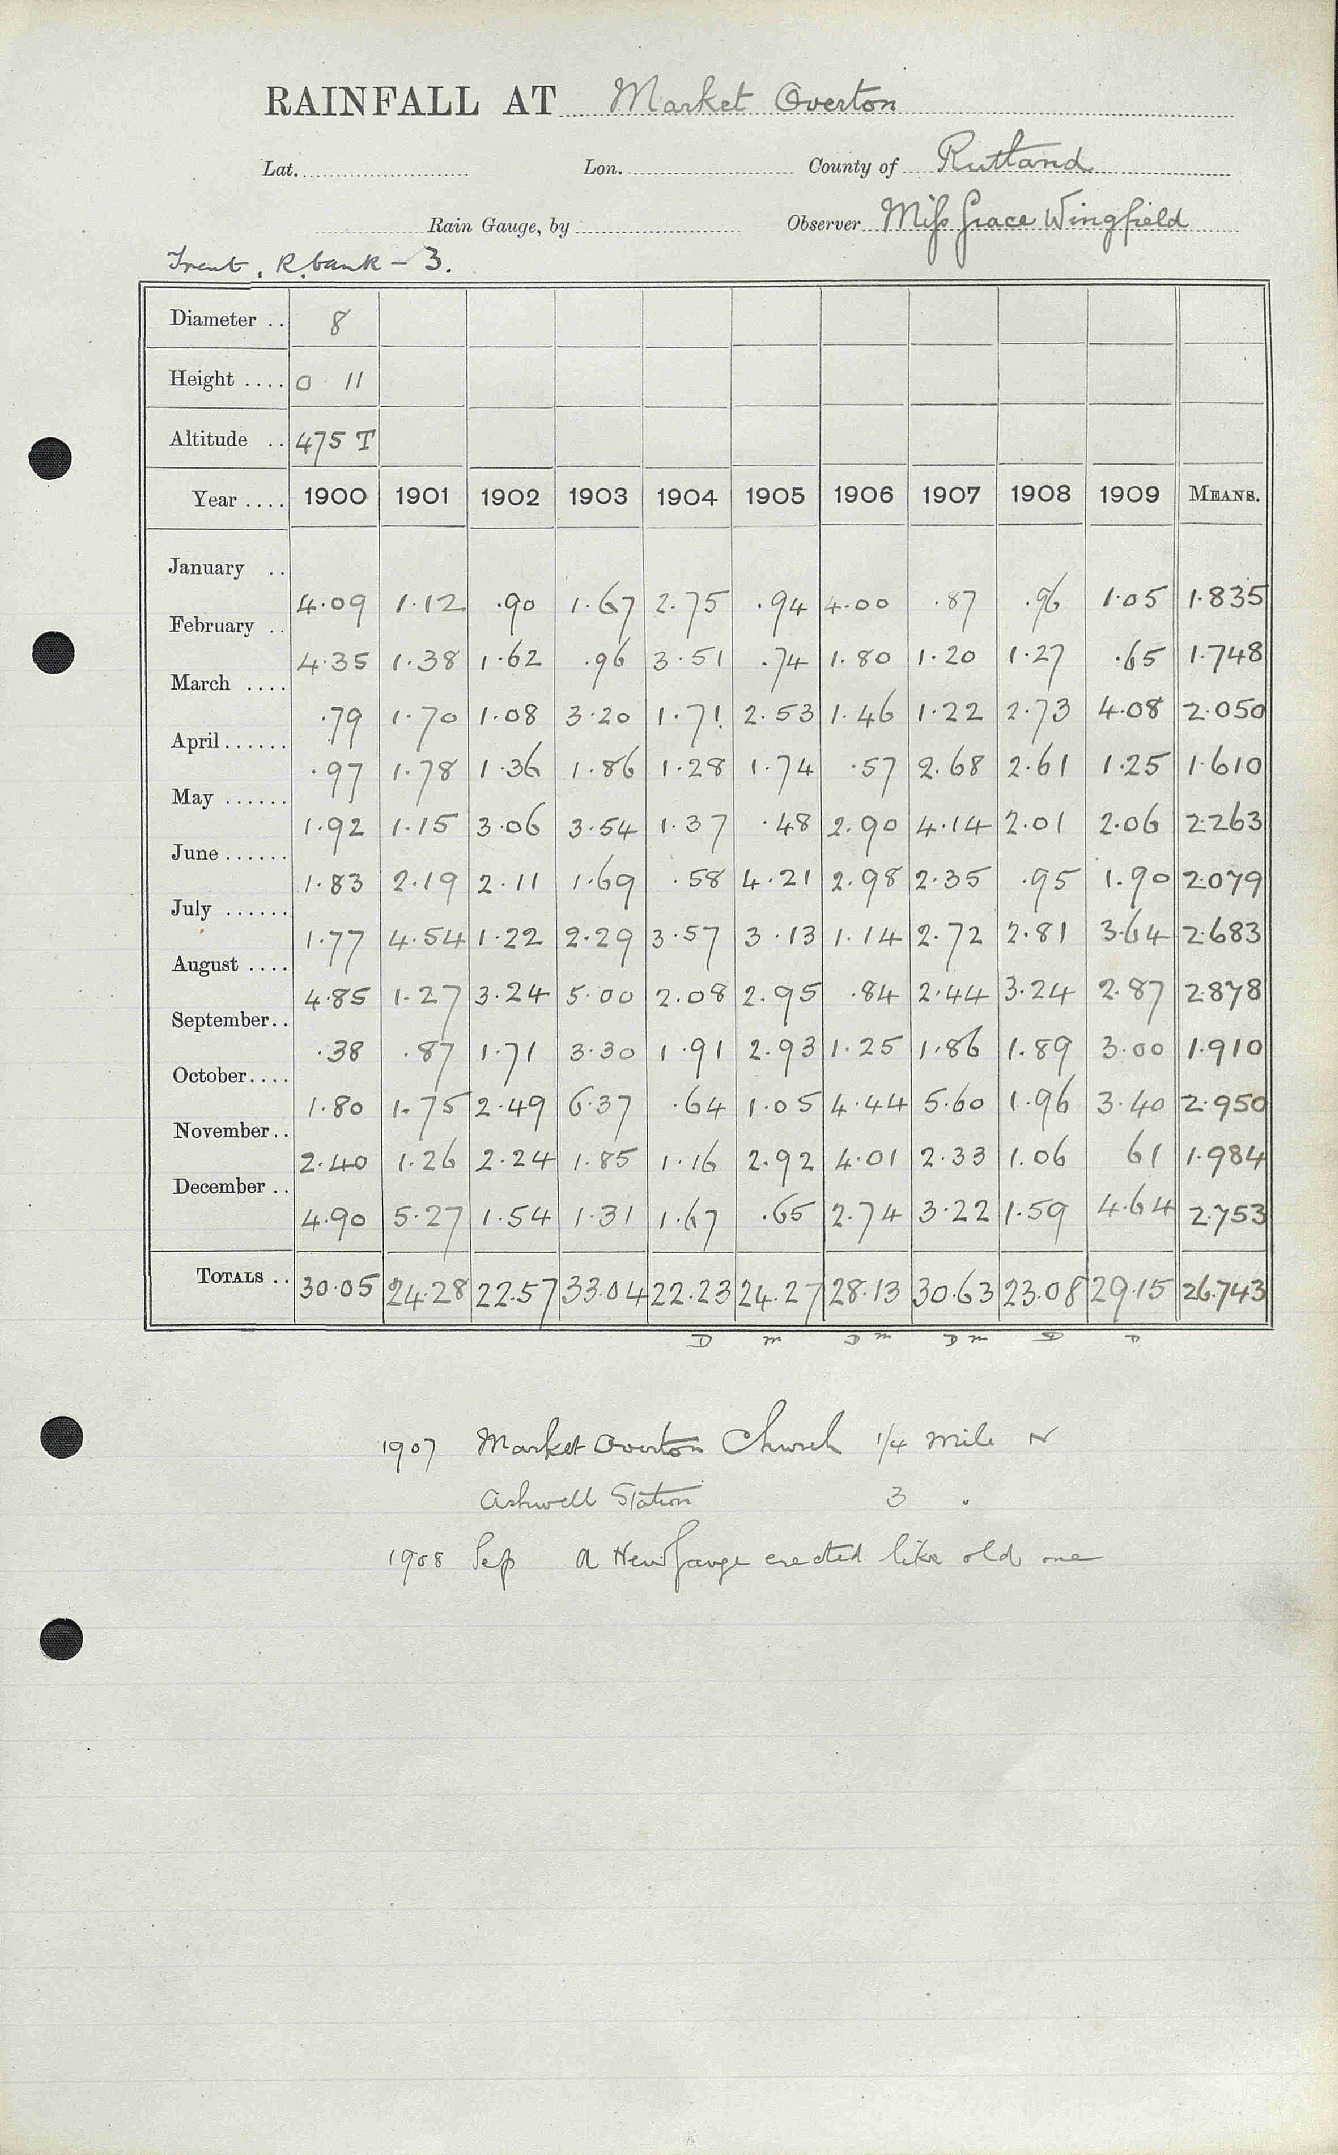 RAINFALL AT Market Overton
Lat. Lon. County of Rutland
Rain Gauge, by Observer Miss Grace Wingfield
Trent, R. bank - 3.
Diameter .. 8
Height .... 0 11
Altitude .. 475 T
Year .... 1900 1901 1902 1903 1904 1905 1906 1907 1908 1909 MEANS.
January .. 4.09 1.12 .90 1.67 2.75 .94 4.00 .87 .96 1.05 1.835
February .. 4.35 1.38 1.62 .96 3.51 .74 1.80 1.20 1.27 .65 1.748
March .... .79 1.70 1.08 3.20 1.71 2.53 1.46 1.22 2.73 4.08 2.050
April...... .97 1.78 1.36 1.86 1.28 1.74 .57 2.68 2.61 1.25 1.610
May ...... 1.92 1.15 3.06 3.54 1.37 .48 2.90 4.14 2.01 2.06 2.263
June ...... 1.83 2.19 2.11 1.69 .58 4.21 2.98 2.35 .95 1.90 2.079
July ...... 1.77 4.54 1.22 2.29 3.57 3.13 1.14 2.72 2.81 3.64 2.683
August .... 4.85 1.27 3.24 5.00 2.08 2.95 .84 2.44 3.24 2.87 2.878
September.. .38 .87 1.71 3.30 1.91 2.93 1.25 1.86 1.89 3.00 1.910
October.... 1.80 1.75 2.49 6.37 .64 1.05 4.44 5.60 1.96 3.40 2.950
November.. 2.40 1.26 2.24 1.85 1.16 2.92 4.01 2.33 1.06 61 1.984
December .. 4.90 5.27 1.54 1.31 1.67 .65 2.74 3.22 1.59 4.64 2.753
TOTALS .. 30.05 24.28 22.57 33.04 22.23 24.27 28.13 30.63 23.08 29.15 26.743
D m D m D m D D
1907 Market Overton Church 1/4 mile N
Ashwell Station 3 "
1908 Sep A New Gauge erected like old one